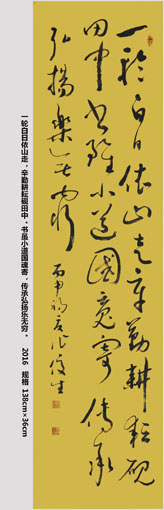 一轮白日依山走辛勤耕耘硯
田中书雖小道國魂寄传承
弘揚樂无穷 丙申初夏
一轮白日依山走，辛勤耕耘砚田中，书虽小道国魂寄，传承弘扬乐无穷。 2016 规格 138cm×36cm